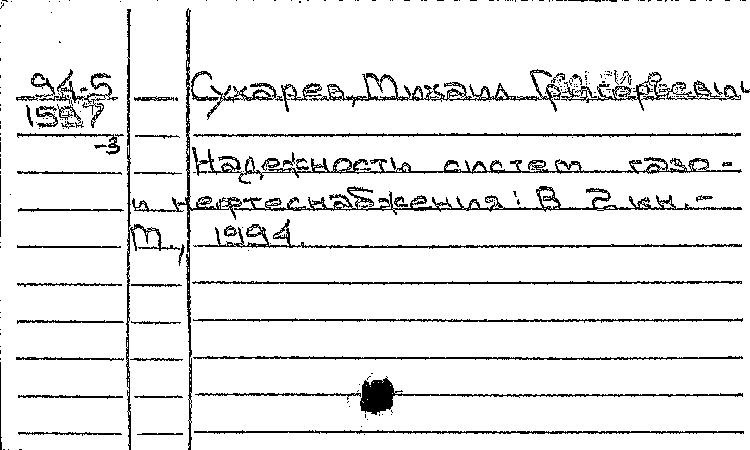 94-5 Сухарев, Михаил Григорьевич
1597
-3
Надежность систем газо-
и нефтеснабжения: В 2 кн.-
М., 1994.